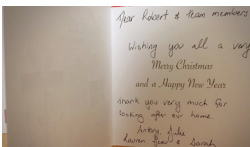 Dear Robert & team members
Wishing you all a very
Merry Christmas
and a Happy New Year
Thank you very much for
looking after our home.
Antony, Julie
Lauren & Sarah